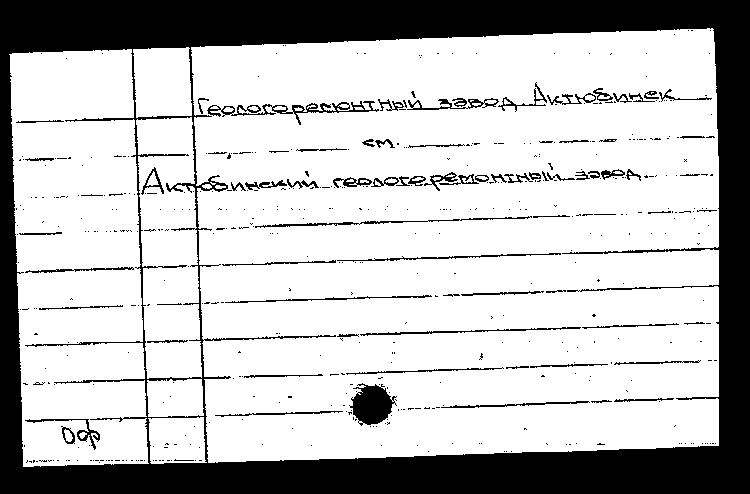 Геологоремонтный завод, Актюбинск
см.
Актюбинский геологоремонтный завод
Оф